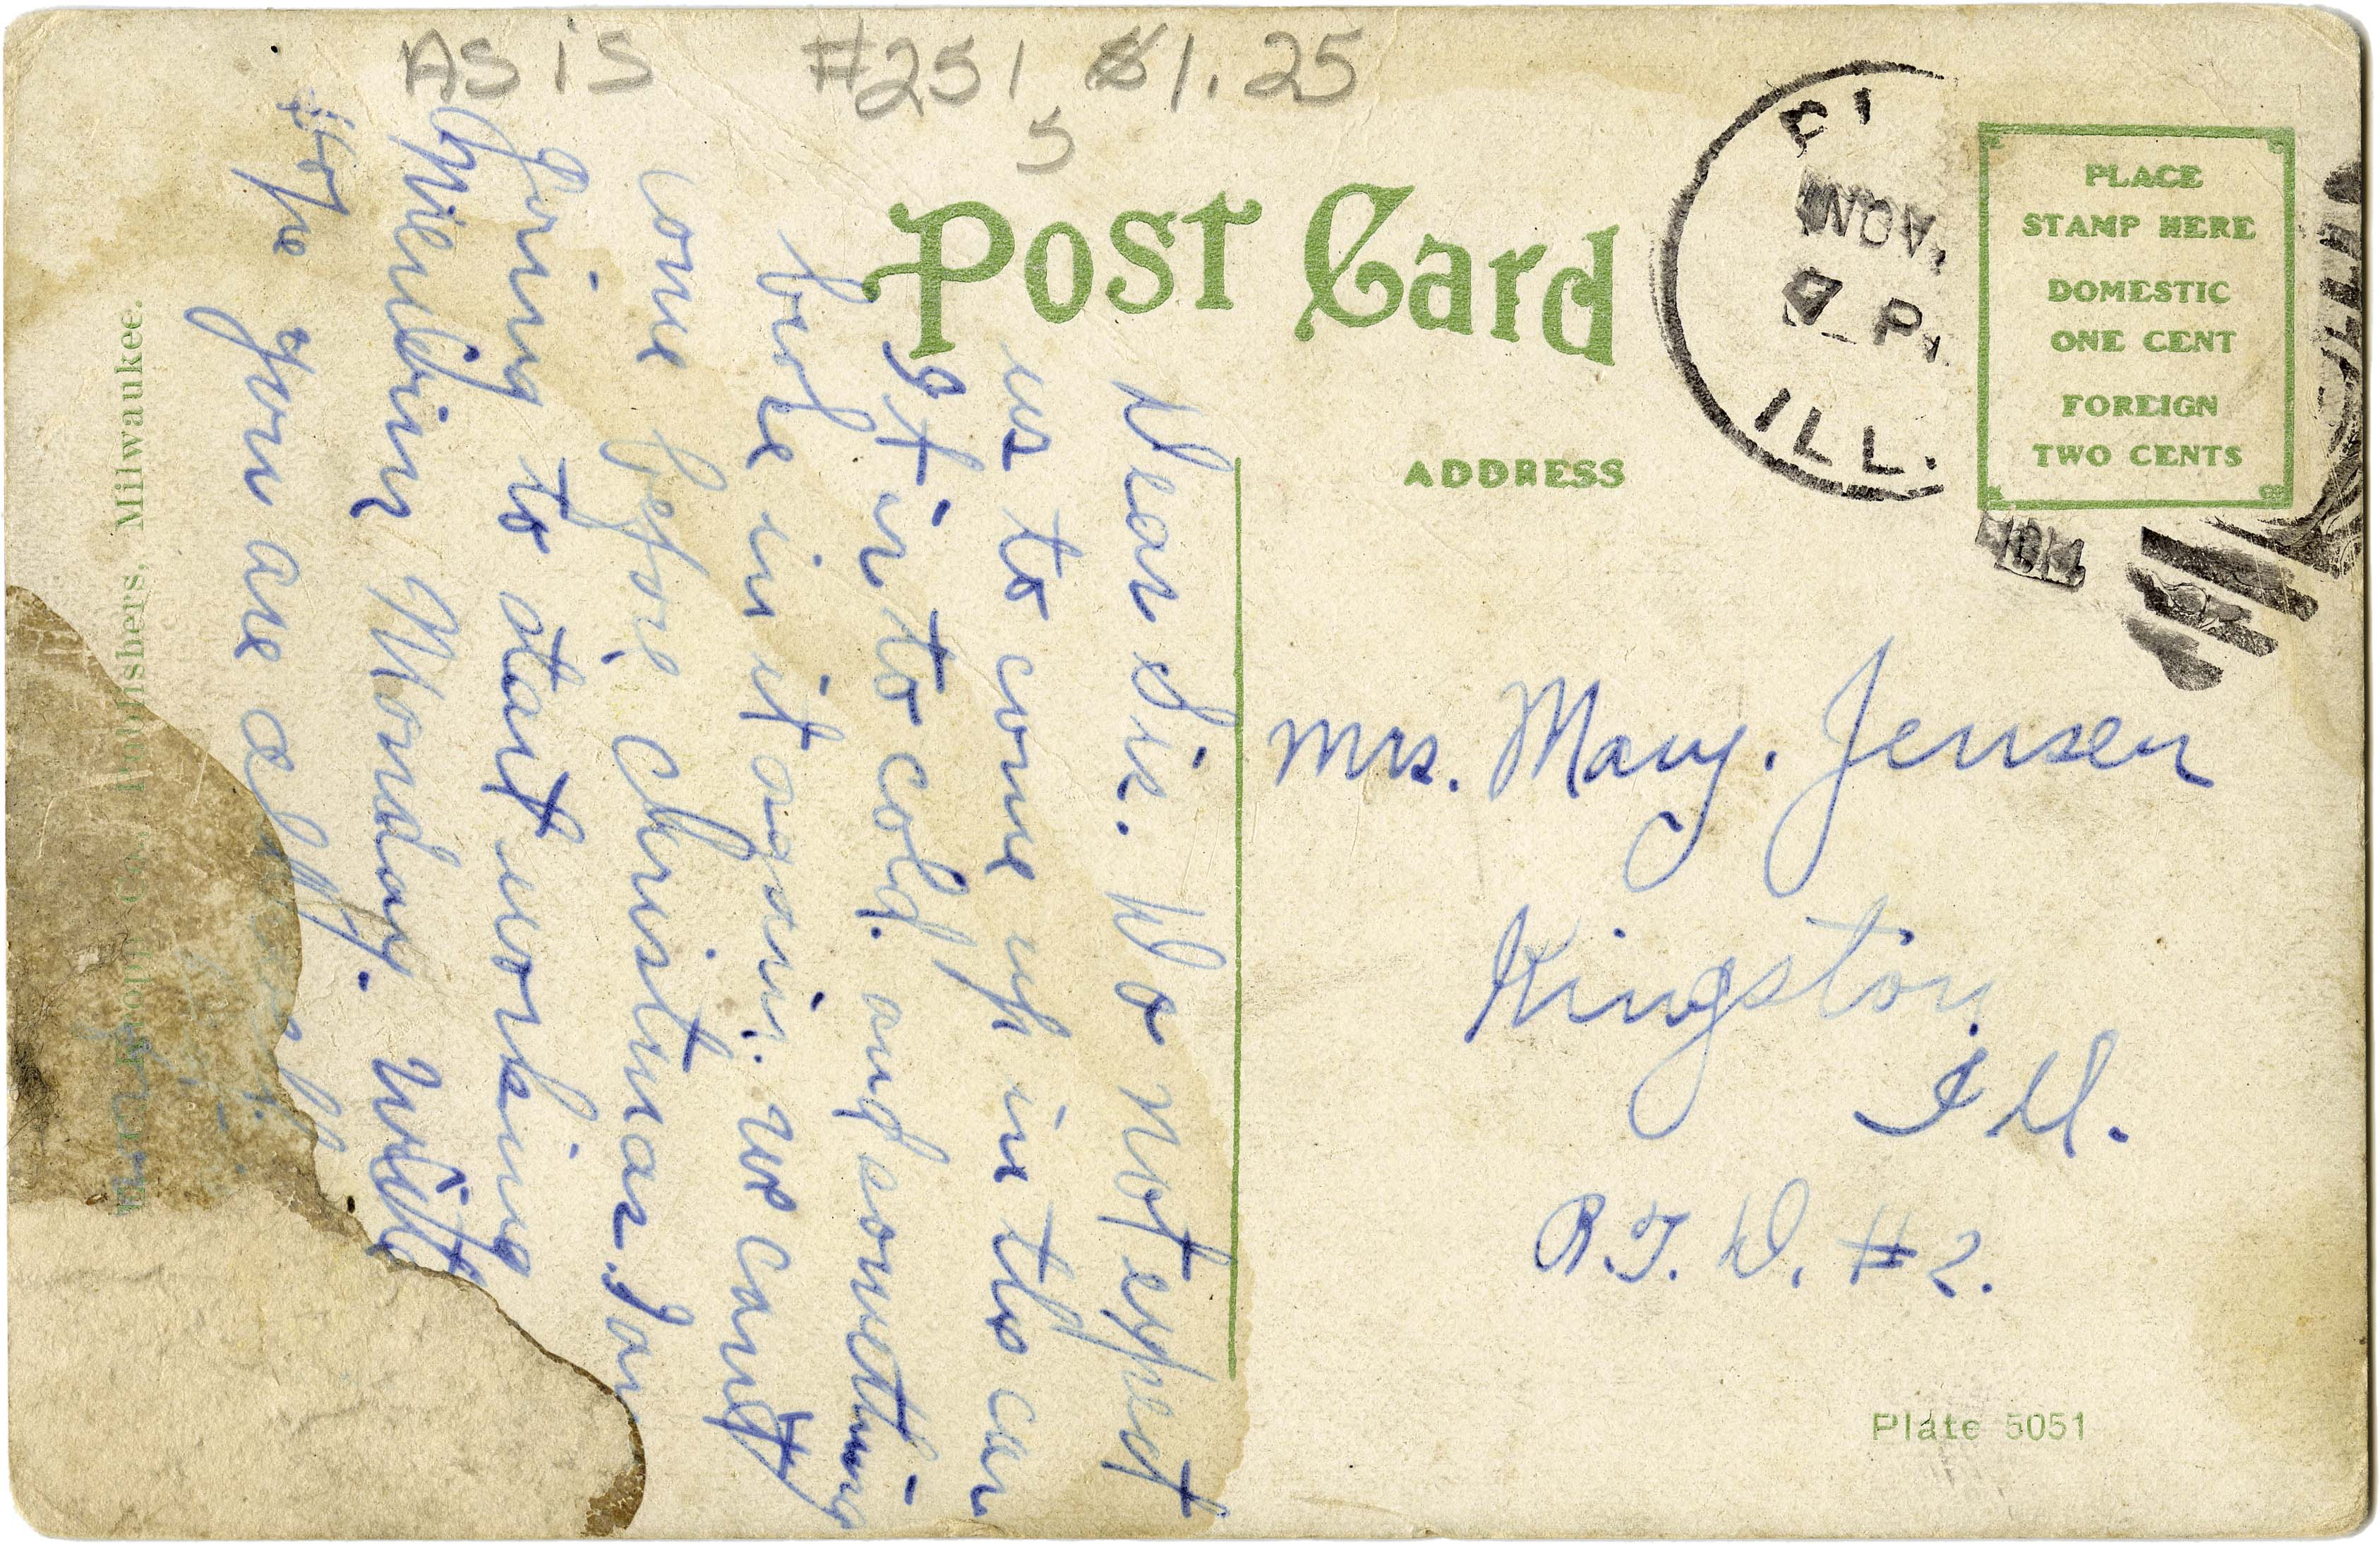 AS IS #251 $1.25
5
Post Card
ADDRESS
PLACE
STAMP HERE
DOMESTIC
ONE CENT
FOREIGN
TWO CENTS
NOV.
7 P
ILL.
Dear Sis. Do not expect
us to come up in this car
It is to cold. and something
broke in it again. We cant
come before Christmas. I am
going to start working
Morning Monday. Will
Hope you are all
Mrs. Mary. Jensen
Kingston
Ill.
R.F.D. #2.
Plate 5051
Co., Publishers, Milwaukee.